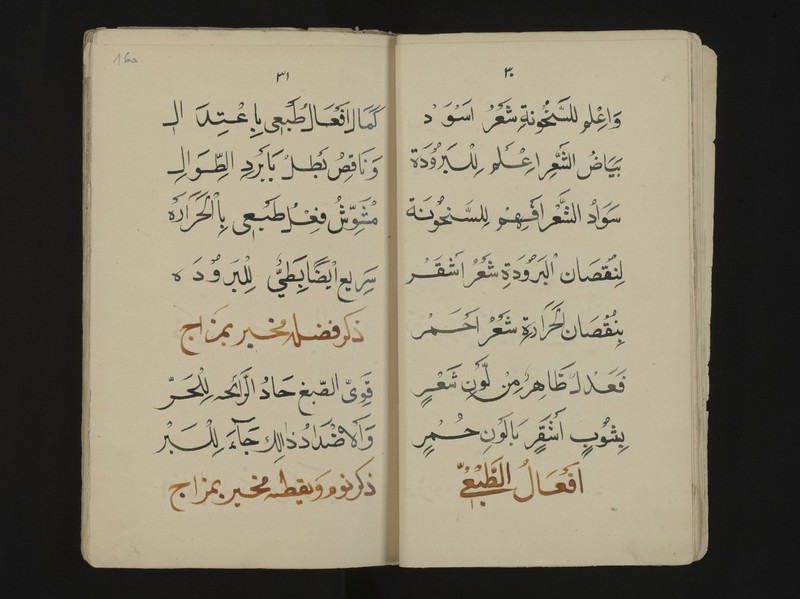 ٣٠
وَاعْلَم للسَّخُونَةِ شَعْرُ اسْوَد
بَيَاضُ الشَّعْرِ اعْلَم لِلْبَرُودَة
سَوَادُ الشَّعْرِ افْهَم لِلسَّخُونَة
لِنُقْصَان الْبَرُودَةِ شَعْرُ اشْقَر
بِنُقْصَان الْحَرَارَةِ شَعْرُ احْمَر
فَعَدْل ظَاهِرٌ مِنْ لَّوْنِ شَعْرٍ
بِشَوْبٍ اشْقَرٍ بَالَوْنِ حُمْرٍ
افْعَالُ الطَّبْعِيّ
16a
٣١
كَمَالُ افْعَالُ طَبْعِى بِاعْتِدَال
وَنَاقِصُ بُطْلُ بَابْرَدِ الطِّوَالِ
مُشَوِّشُ فِعْلُ طَبْعِى بِالْحَرَارَة
سَرِيع ايْضًا بَطِيُّ لِلْبَرُودَه
ذكر فضله مخبر بمزاج
قَوِىّ الصّبغ حَادُ الرَّائحه لِلْحَرّ
وَالاضْدَادُ ذالِك جَآءَ لِلْبَرْ
ذكر نوم ويقظه مخبر بمزاج